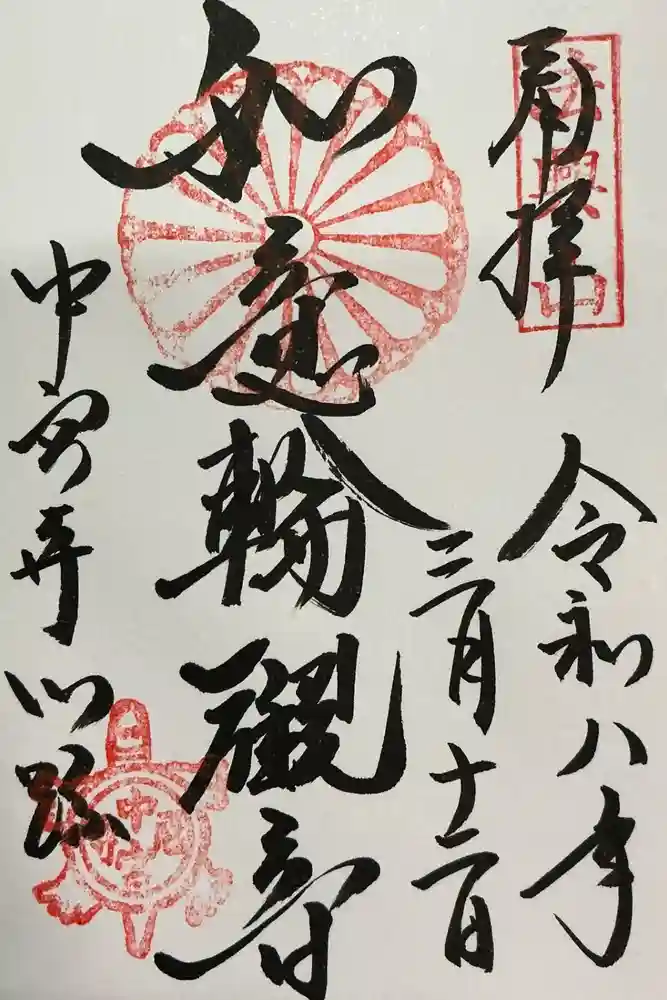 奉拝
法興山
令和八年
三月十二日
如意輪観音
中宮寺門跡